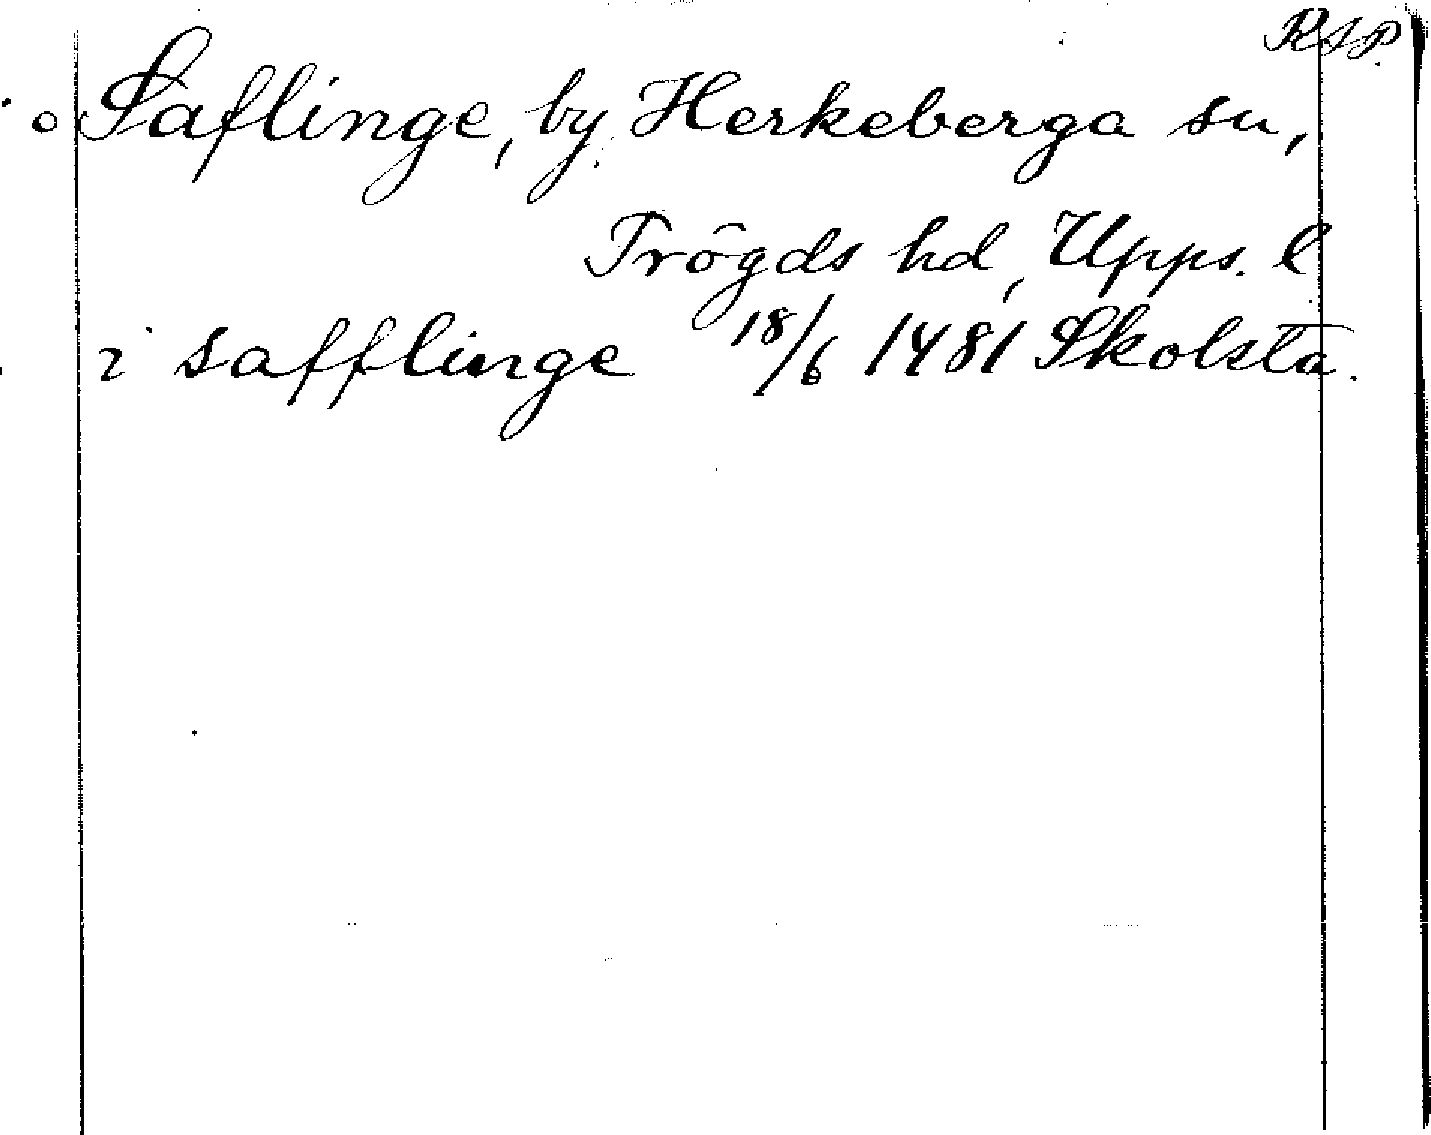 RAP.
o Saflinge, by, Herkeberga sn,
Trögds hd, Upps. l
i safflinge 18/6 1481 Skolsta.